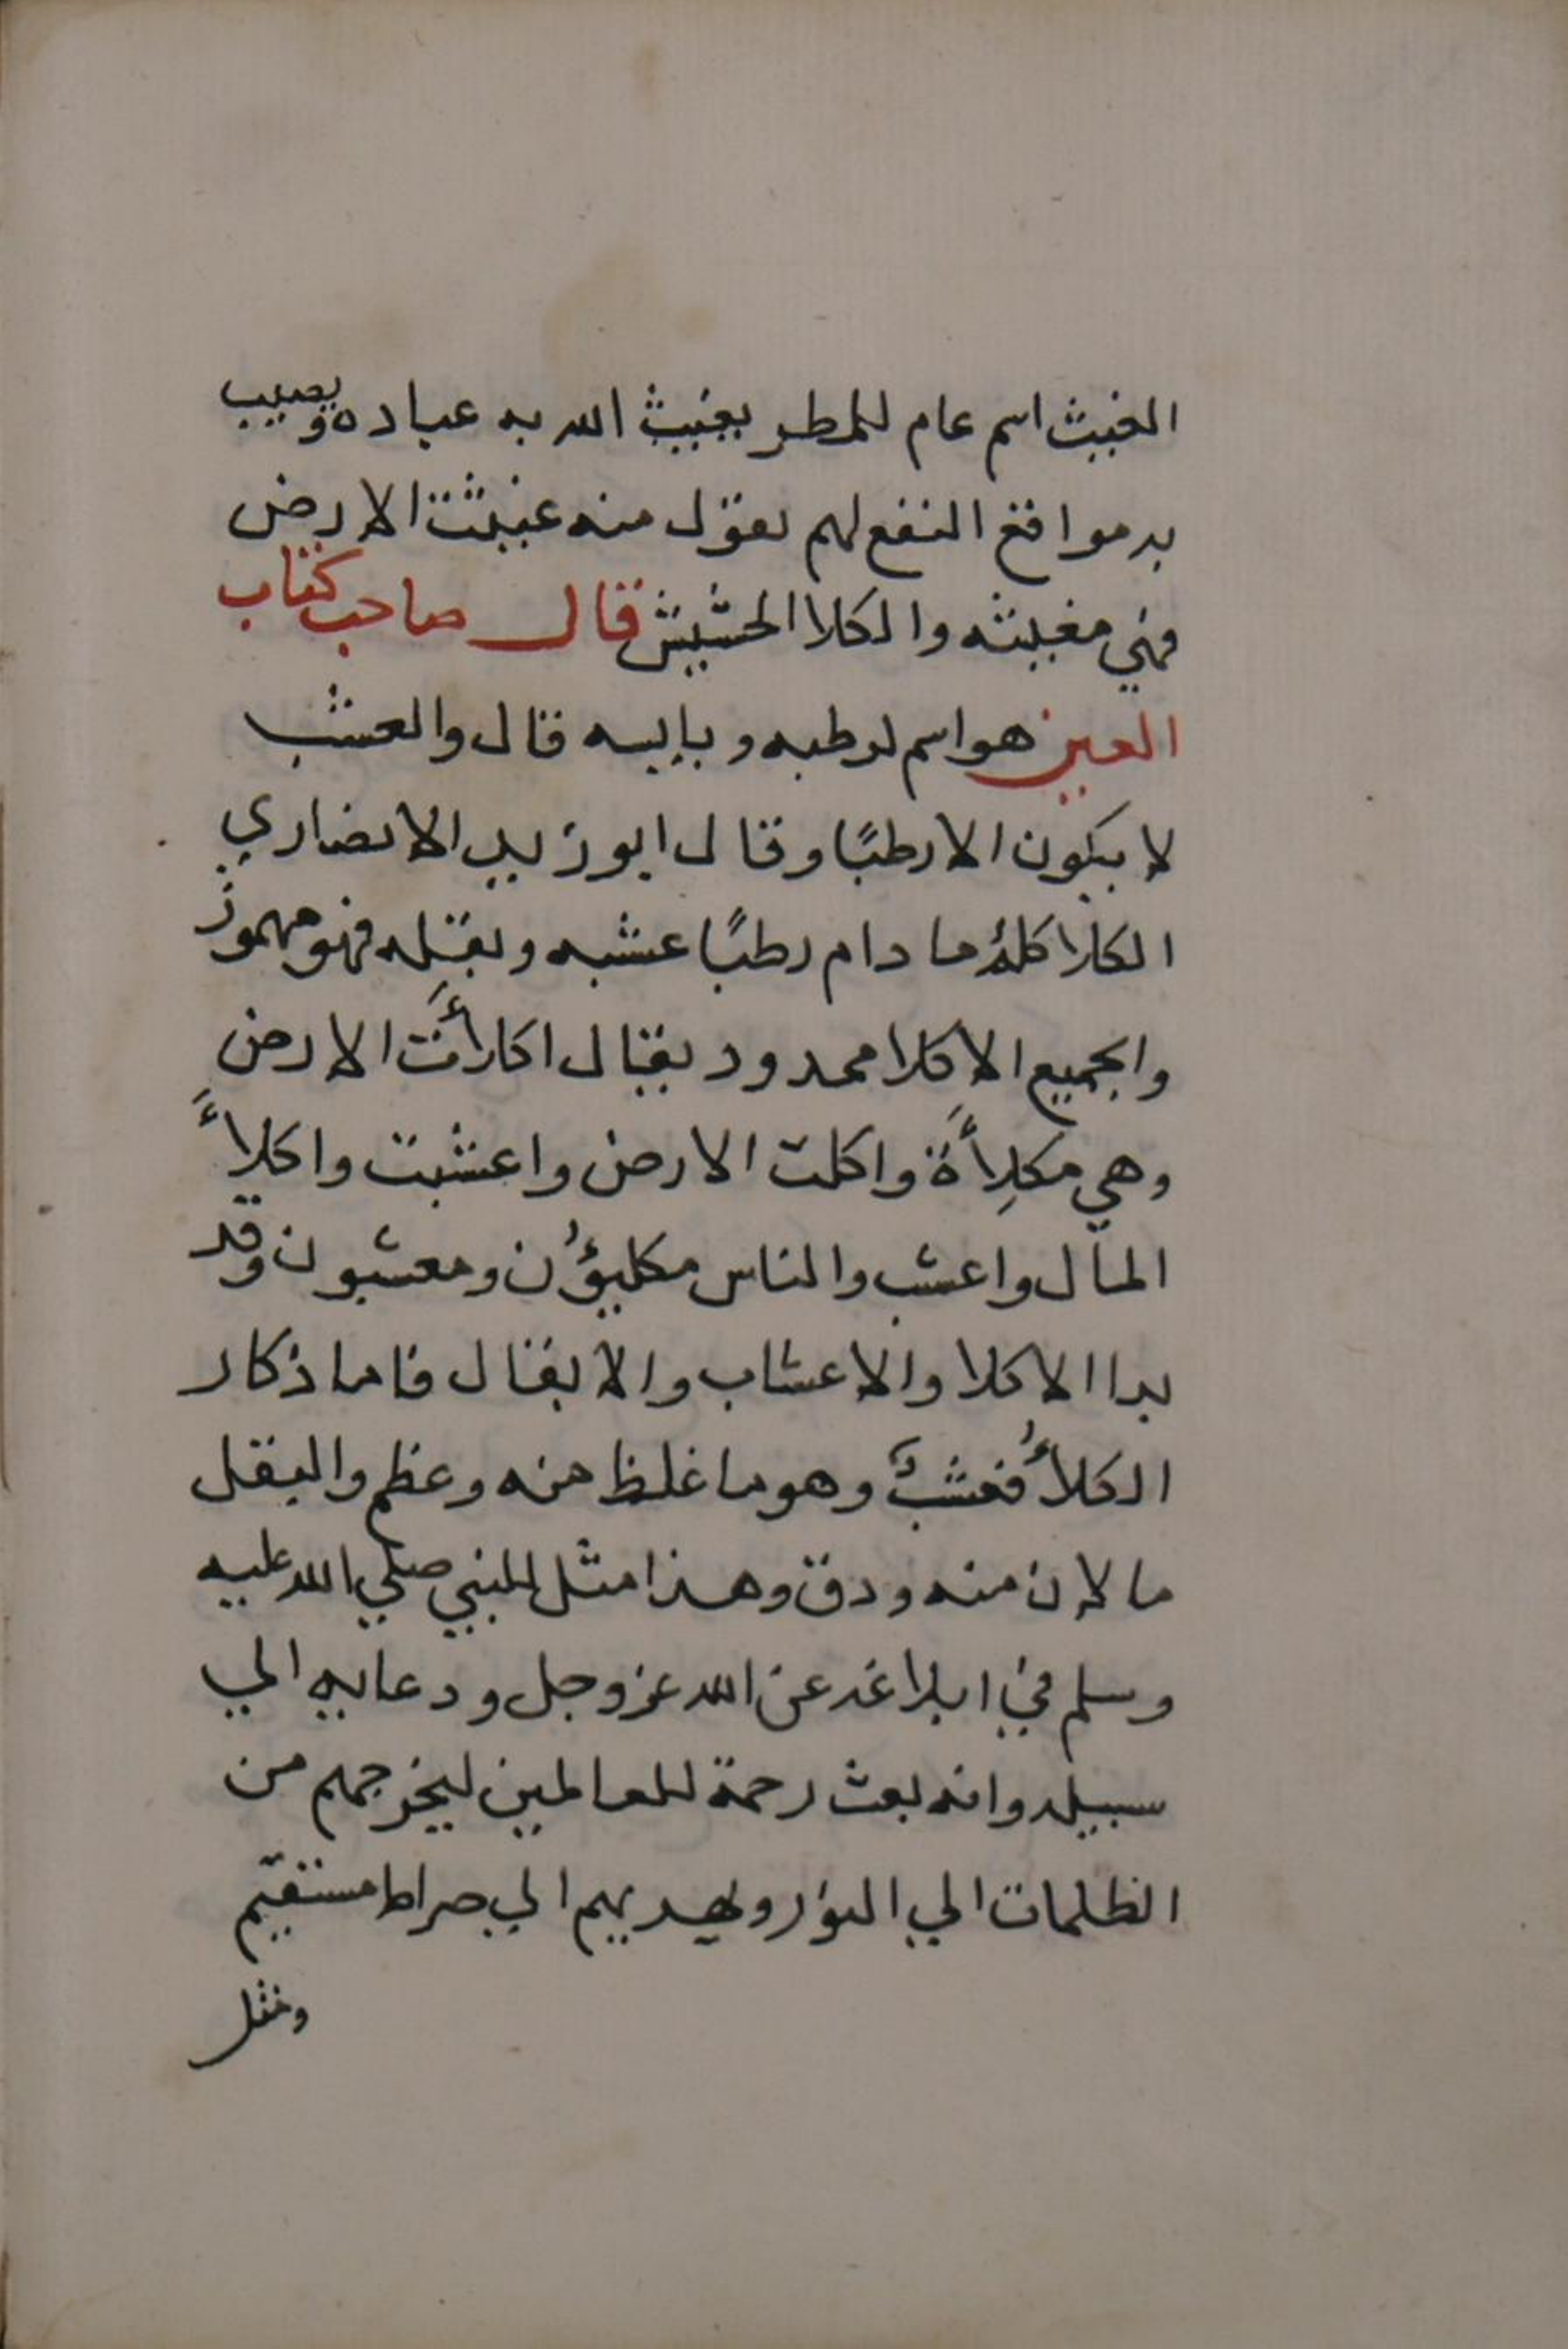 الغيث اسم عام للمطر يغيث الله به عباده ويصيب
به مواقع النفع لهم تقول منه غيثت الارض
فهي مغيثه والكلا الحشيش قال صاحب كتاب
العين هو اسم لرطبه ويابسه قال والعشب
لا يكون الا رطبًا وقال ابو زيد الانصاري
الكلا كلهُ ما دام رطبًا عشبه وبقله فهو مهموز
والجميع الاكلا ممدود يقال اكلأَت الارض
وهي مكلِأَة واكلت الارض واعشبت واكلأَ
المال واعشب والناس مكليؤُن ومعشبون وقد
بدا الاكلا والاعشاب والابقال فاما ذكار
الكلأُ فعشبٌ وهو ما غلظ منه وعظم والبقل
ما لان منه ودق وهذا مثل للنبي صلي الله عليه
وسلم في ابلاغه عن الله عز وجل ودعايه الي
سبيله وانه بعث رحمة للعالمين ليخرجهم من
الظلمات الي النور ويهديهم الي صراط مستقيم
ومثل